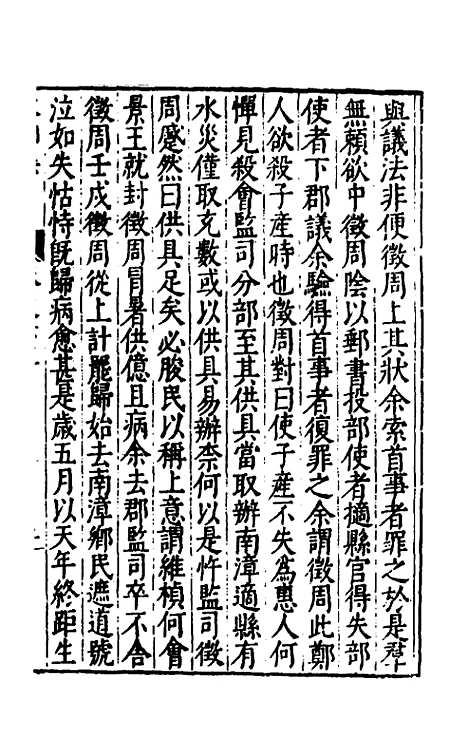 與議法非便徵周上其狀余索首事者罪之於是羣
無賴欲中徵周陰以郵書投部使者擿縣官得失部
使者下郡議余驗得首事者復罪之余謂徵周此鄭
人欲殺子產時也徵周對曰使子產不失為惠人何
憚見殺會監司分部至其供具當取辦南漳適縣有
水災僅取充數或以供具易辦柰何以是忤監司徵
周蹙然曰供具足矣必朘民以稱上意謂維楨何會
景王就封徵周冒暑供億且病余去郡監司卒不合
徵周壬戌徵周從上計罷歸始去南漳鄉民遮道號
泣如失怙恃旣歸病愈甚是歲五月以天年終距生